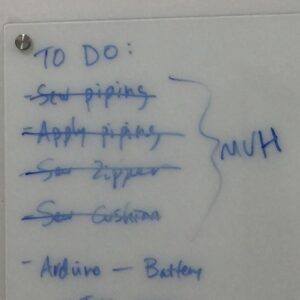 TO DO:
- Sew piping
- Apply piping
- Sew Zipper
- Sew Cushion
MVH
- Arduino — Battery